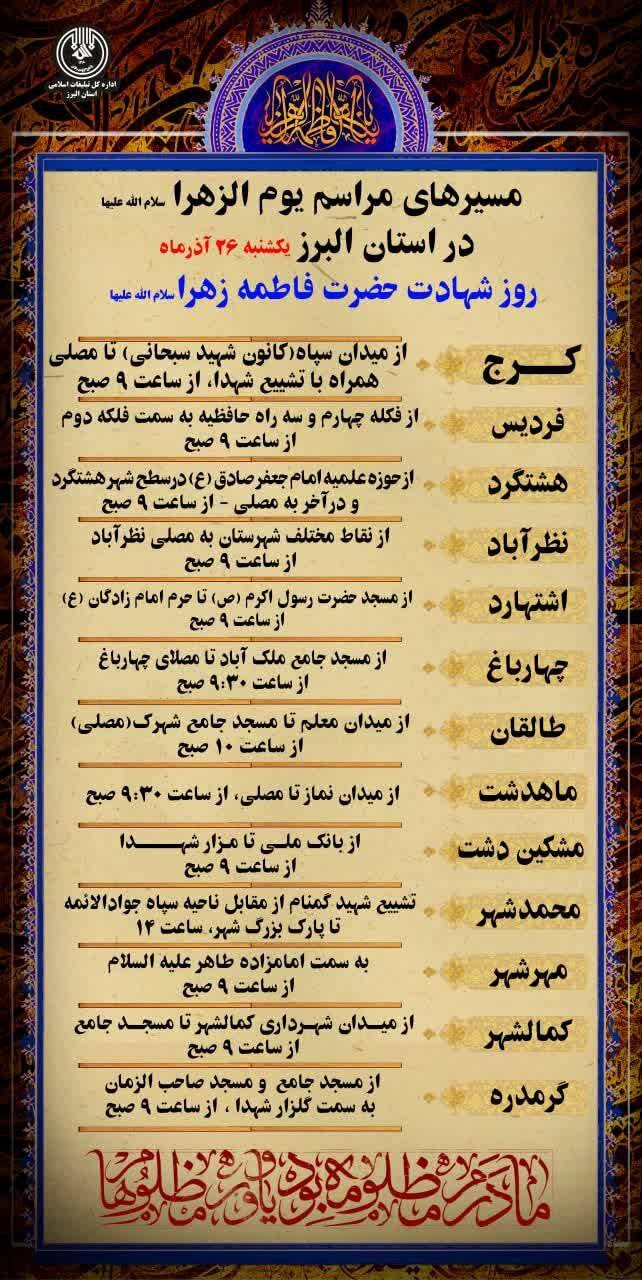 اداره کل تبلیغات اسلامی
استان البرز
مسیرهای مراسم یوم الزهرا سلام الله علیها
در استان البرز یکشنبه ۲۶ آذرماه
روز شهادت حضرت فاطمه زهرا سلام الله علیها
کــرج
از میدان سپاه(کانون شهید سبحانی) تا مصلی
همراه با تشییع شهدا، از ساعت ۹ صبح
فردیس
از فکله چهارم و سه راه حافظیه به سمت فلکه دوم
از ساعت ۹ صبح
هشتگرد
از حوزه علمیه امام جعفر صادق (ع) در سطح شهر هشتگرد
و در آخر به مصلی - از ساعت ۹ صبح
نظرآباد
از نقاط مختلف شهرستان به مصلی نظرآباد
از ساعت ۹ صبح
اشتهارد
از مسجد حضرت رسول اکرم (ص) تا حرم امام زادگان (ع)
از ساعت ۹ صبح
چهارباغ
از مسجد جامع ملک آباد تا مصلای چهارباغ
از ساعت ۹:۳۰ صبح
طالقان
از میدان معلم تا مسجد جامع شهرک(مصلی)
از ساعت ۱۰ صبح
ماهدشت
از میدان نماز تا مصلی، از ساعت ۹:۳۰ صبح
مشکین دشت
از بانک ملـی تا مـزار شهـــدا
از ساعت ۹ صبح
محمدشهر
تشییع شهید گمنام از مقابل ناحیه سپاه جوادالائمه
تا پارک بزرگ شهر، ساعت ۱۴
مهرشهر
به سمت امامزاده طاهر علیه السلام
از ساعت ۹ صبح
کمالشهر
از میـدان شهـرداری کمالشهر تا مسجـد جامع
از ساعت ۹ صبح
گرمدره
از مسجد جامع و مسجد صاحب الزمان
به سمت گلزار شهدا ، از ساعت ۹ صبح